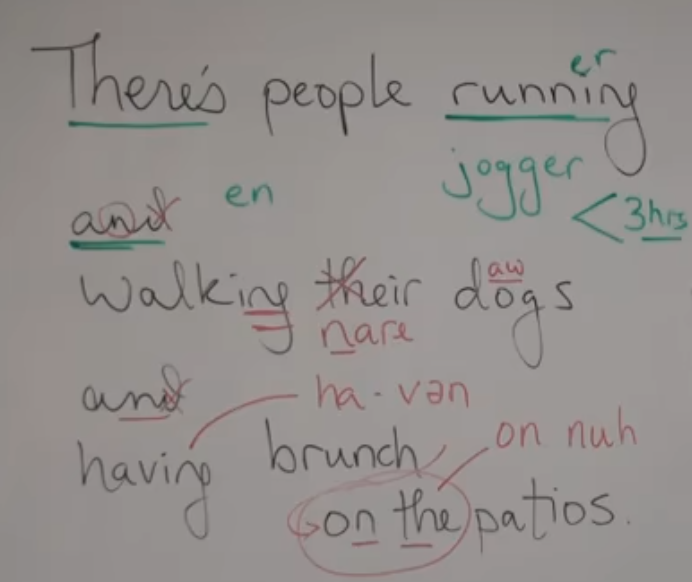 er
There's people running
jogger
and en <3hrs
aw
walking their dogs
nare
and ha-vən
having brunch on nuh
on the patios.